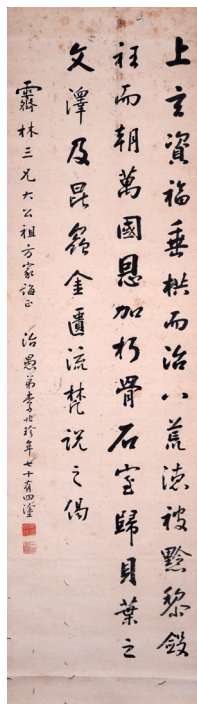 上玄資福垂拱而治八荒德被黔黎斂
衽而朝萬國恩加朽骨石室歸貝葉之
文澤及昆蟲金匱流梵說之偈
霽林三兄大公祖方家誨正 治愚弟李兆珍年七十有四塗